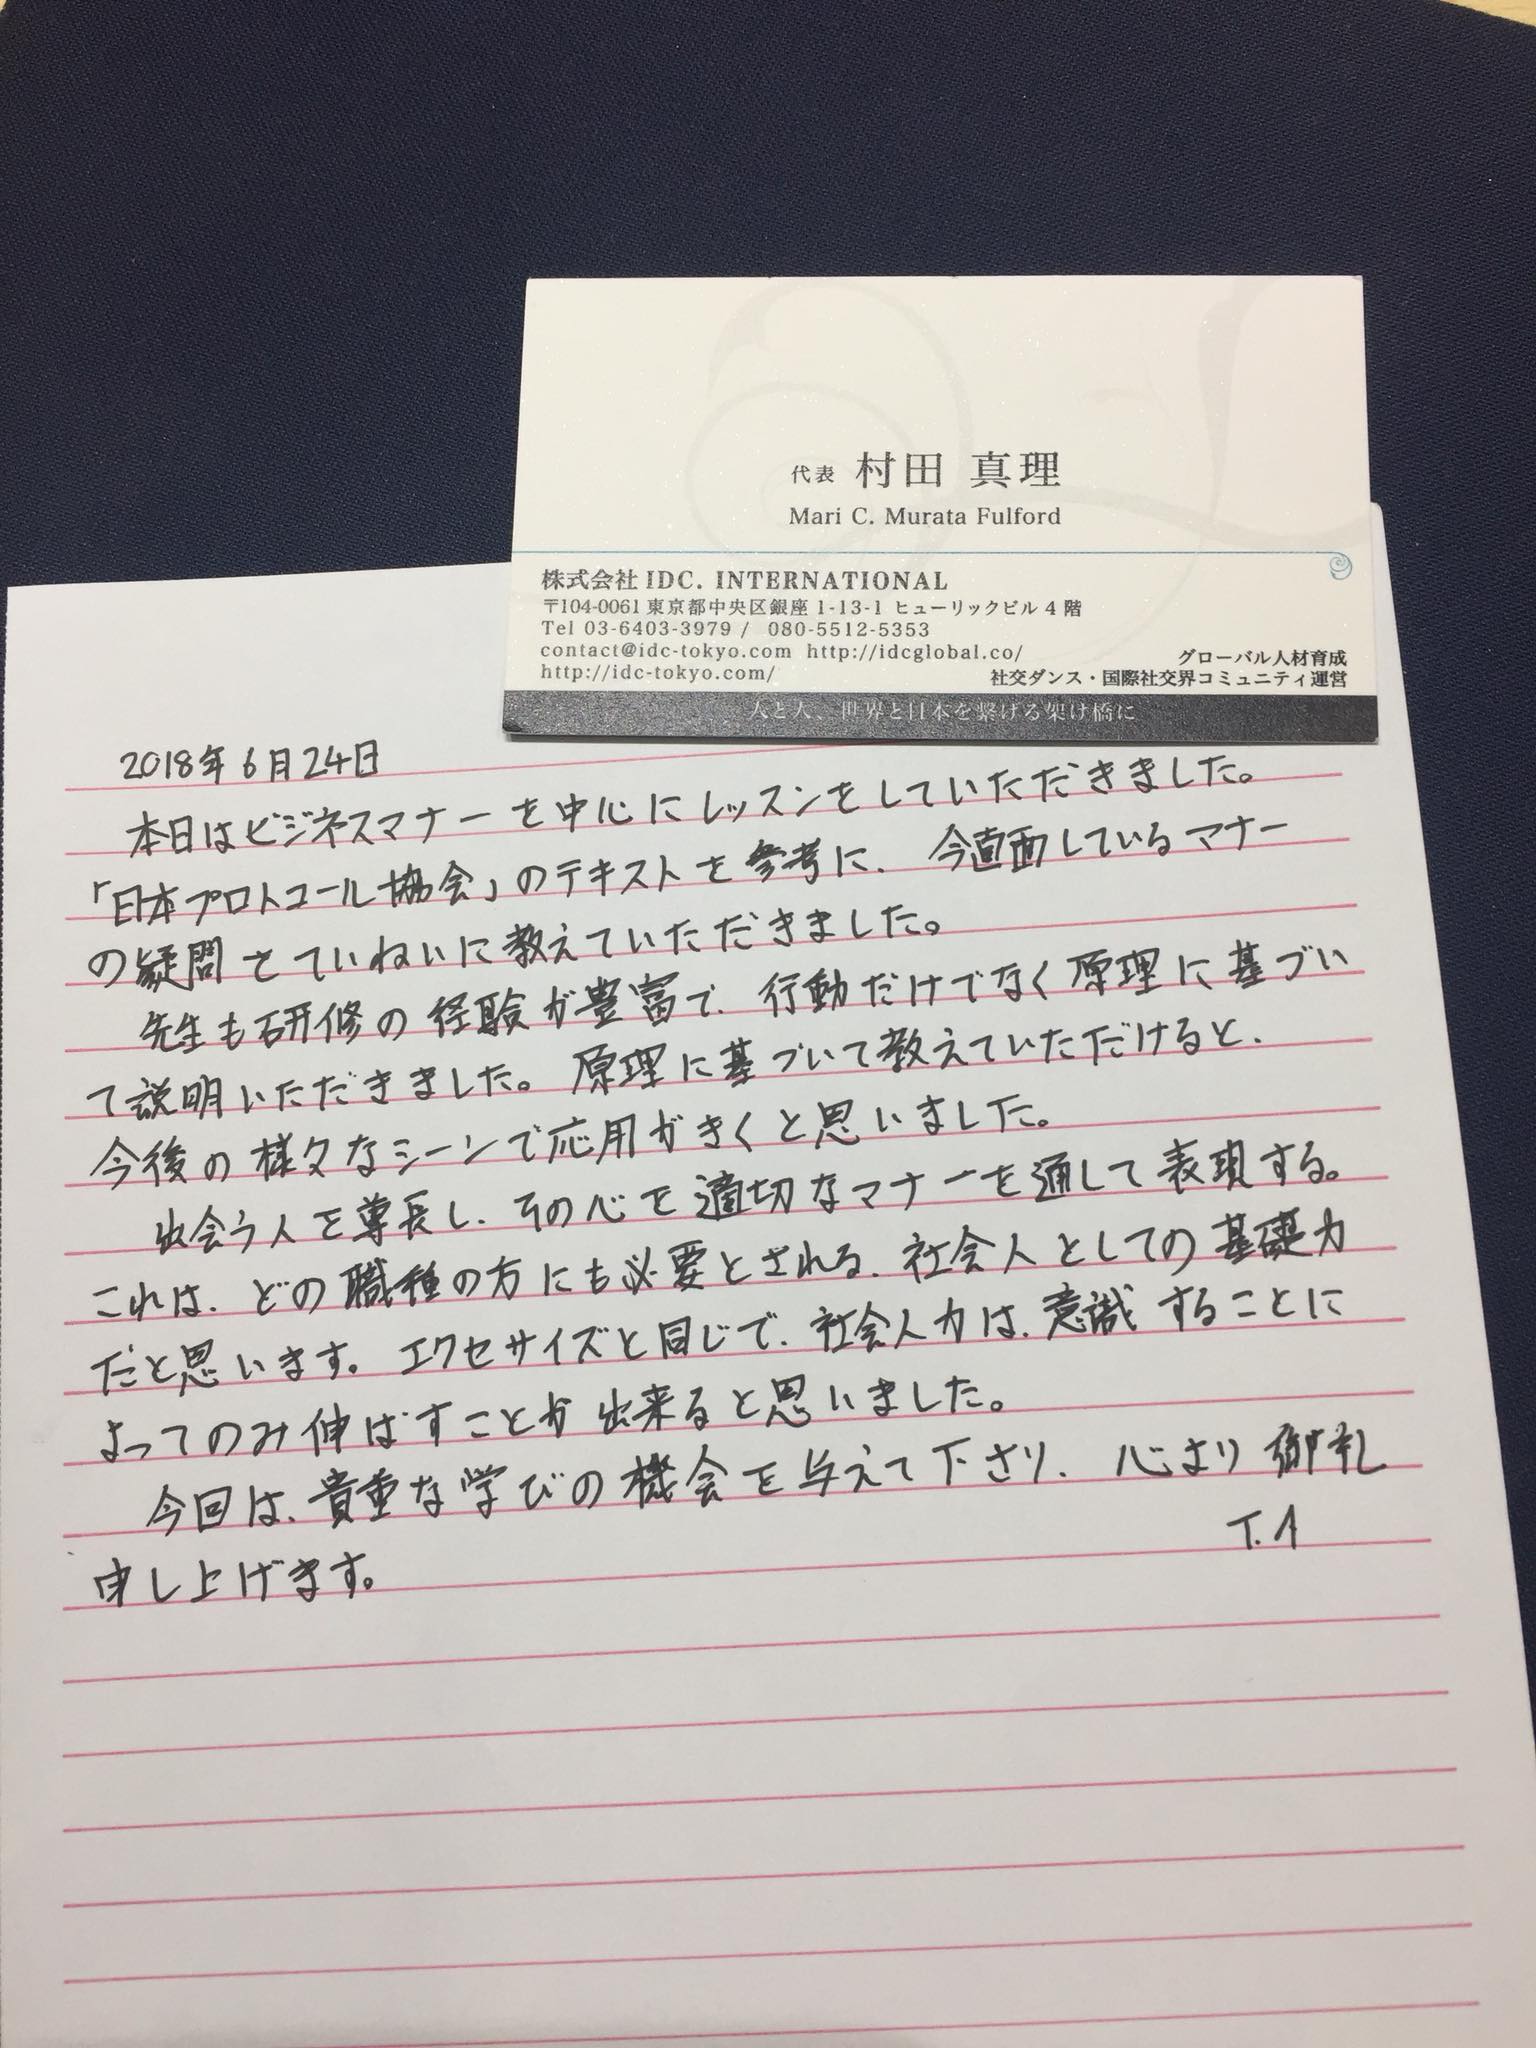 代表 村田 真理
Mari C. Murata Fulford
株式会社 IDC. INTERNATIONAL
〒104-0061 東京都中央区銀座 1-13-1 ヒューリックビル 4 階
Tel 03-6403-3979 / 080-5512-5353
contact@idc-tokyo.com http://idcglobal.co/
http://idc-tokyo.com/
グローバル人材育成
社交ダンス・国際社交界コミュニティ運営
人と人、世界と日本を繋げる架け橋に
2018年6月24日
本日はビジネスマナーを中心にレッスンをしていただきました。
「日本プロトコール協会」のテキストを参考に、今直面しているマナー
の疑問をていねいに教えていただきました。
先生も研修の経験が豊富で、行動だけでなく原理に基づい
て説明いただきました。原理に基づいて教えていただけると、
今後の様々なシーンで応用がきくと思いました。
出会う人を尊長し、その心を適切なマナーを通して表現する。
これは、どの職種の方にも必要とされる、社会人としての基礎力
だと思います。エクセサイズと同じで、社会人力は、意識することに
よってのみ伸ばすことが出来ると思いました。
今回は、貴重な学びの機会を与えて下さり、心より御礼
申し上げます。